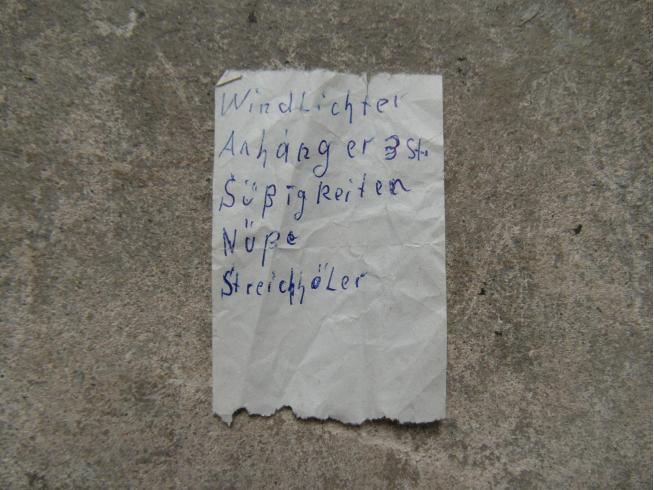 Windlichter
Anhänger 3 St.
Süßigkeiten
Nüße
Streichhöler